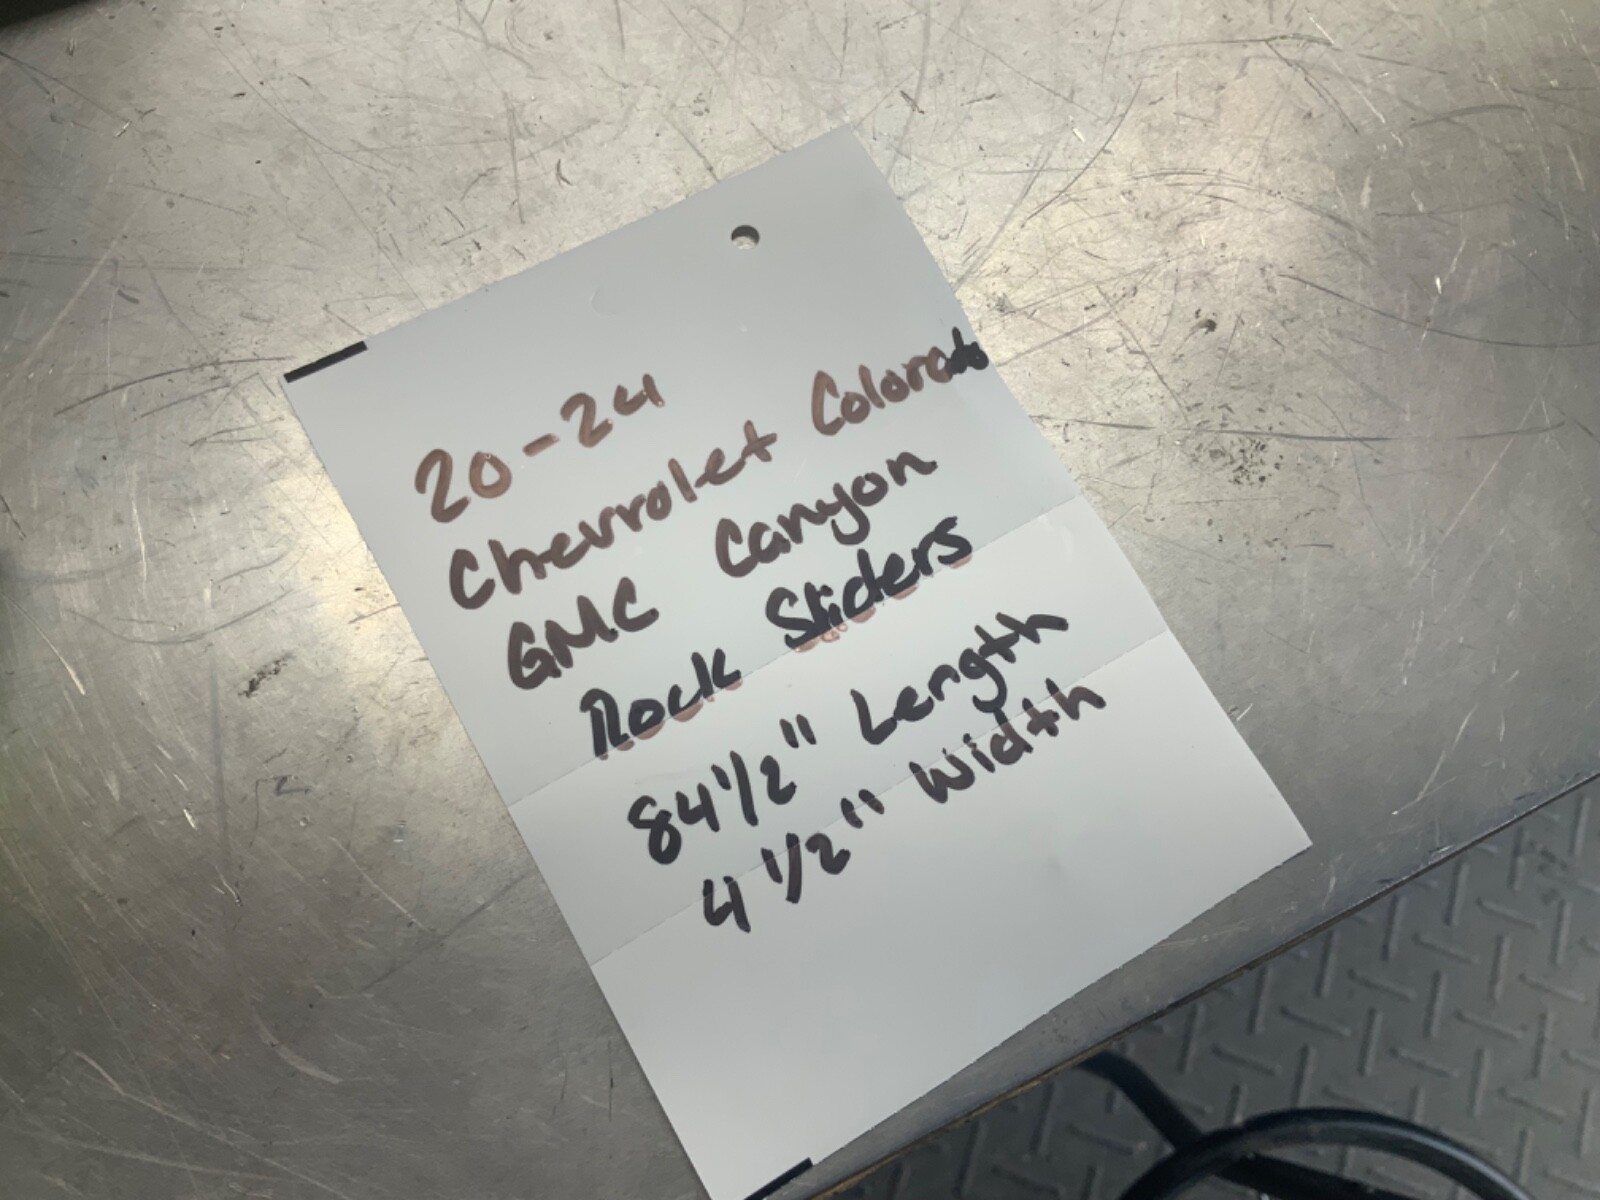 20-24
Chevrolet Colorado
GMC Canyon
Rock Sliders
84 1/2" Length
4 1/2" Width